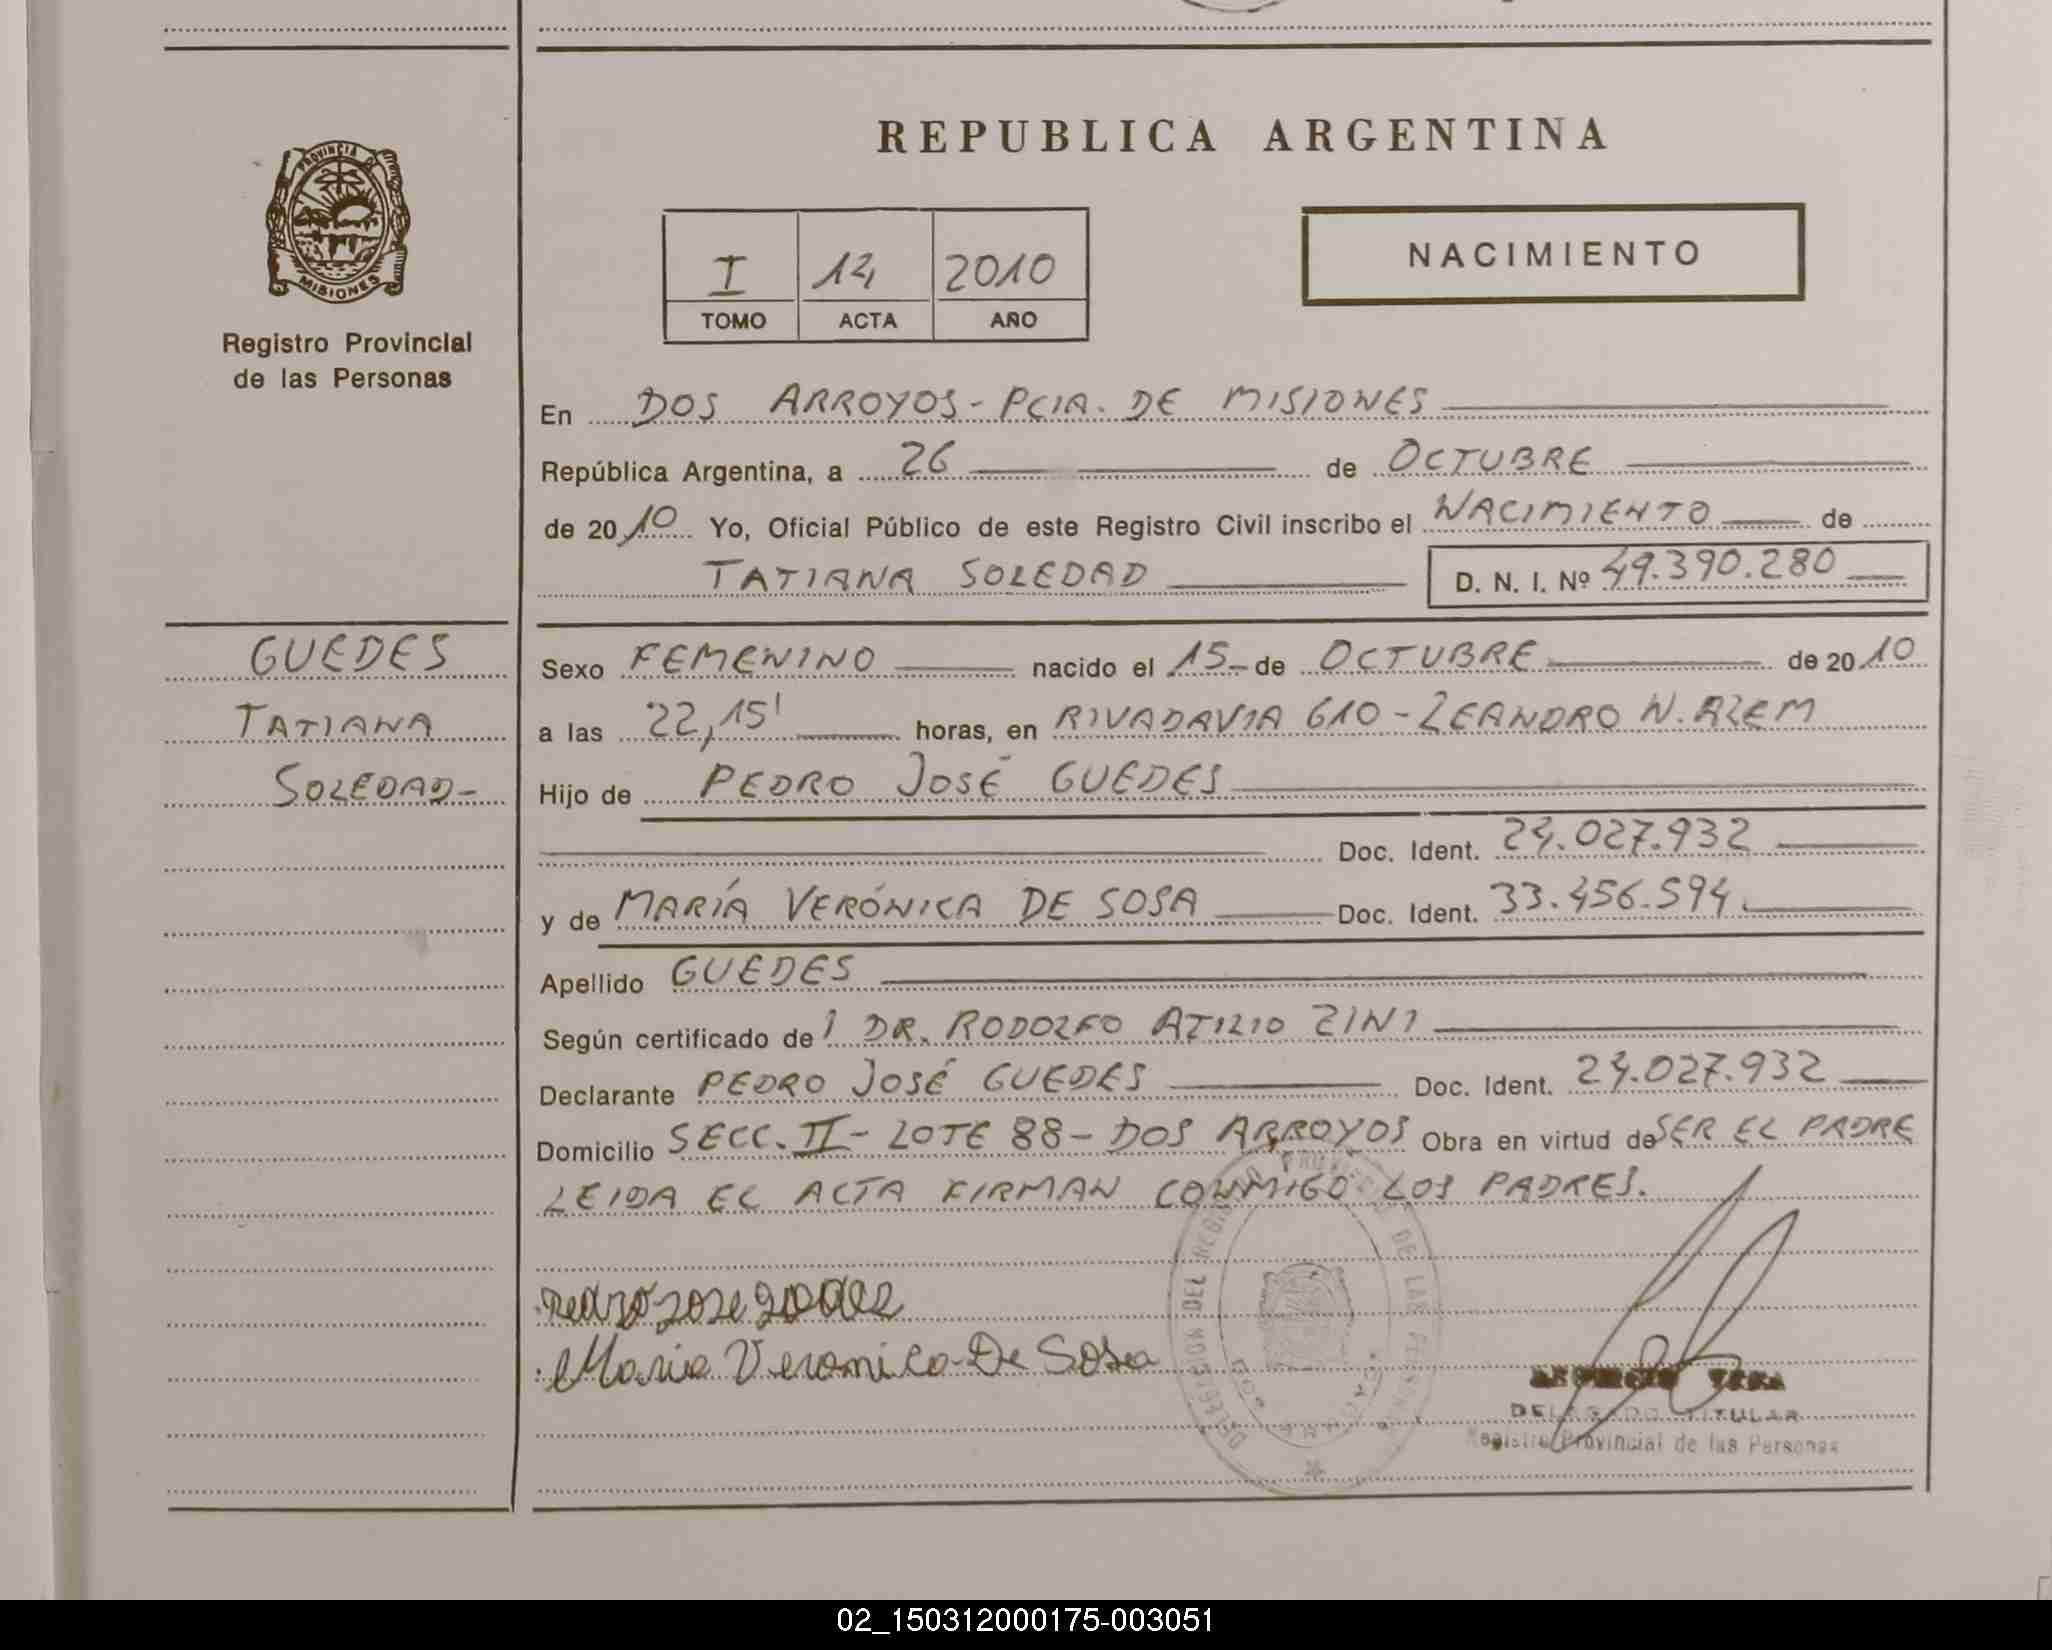 REPUBLICA ARGENTINA
PROVINCIA DE
MISIONES
Registro Provincial
de las Personas
I 14 2010
TOMO ACTA AÑO
NACIMIENTO
En DOS ARROYOS - PCIA. DE MISIONES
República Argentina, a 26 de OCTUBRE
de 2010 Yo, Oficial Público de este Registro Civil inscribo el NACIMIENTO de
TATIANA SOLEDAD D. N. I. Nº 49.390.280
GUEDES
TATIANA
SOLEDAD-
Sexo FEMENINO nacido el 15- de OCTUBRE de 2010
a las 22,15' horas, en RIVADAVIA 610 - LEANDRO N. ALEM
Hijo de PEDRO JOSÉ GUEDES
Doc. Ident. 24.027.932
y de MARÍA VERÓNICA DE SOSA Doc. Ident. 33.456.594.
Apellido GUEDES
Según certificado del DR. RODOLFO ATILIO ZINI
Declarante PEDRO JOSÉ GUEDES Doc. Ident. 24.027.932
Domicilio SECC. II - LOTE 88 - DOS ARROYOS Obra en virtud de SER EL PADRE
LEIDA EL ACTA FIRMAN CONMIGO LOS PADRES.
Maria Veronica De Sosa
DELEGACION DEL REGISTRO PROVINCIAL DE LAS PERSONAS
DELEGADO TITULAR
Registro Provincial de las Personas
02_150312000175-003051